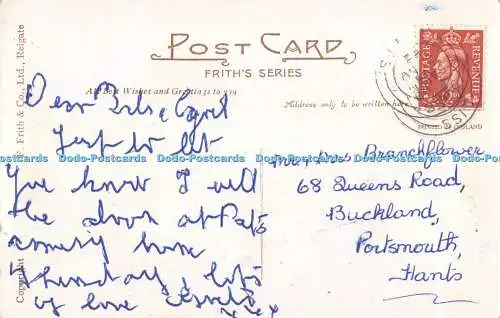 POST CARD
FRITH'S SERIES
With Best Wishes and Greetings to you
Address only to be written here
POSTAGE REVENUE
PRINTED IN ENGLAND
Copyright F. Frith & Co., Ltd., Reigate
Dear
Just to let
You know I will
be down at
coming home
Thursday, lots
of love
xxx
Mr & Mrs Branchflower
68 Queens Road,
Buckland,
Portsmouth,
Hants
Dodo-Postcards Dodo-Postcards Dodo-Postcards Dodo-Postcards Dodo-Postcards Dodo-Postcards